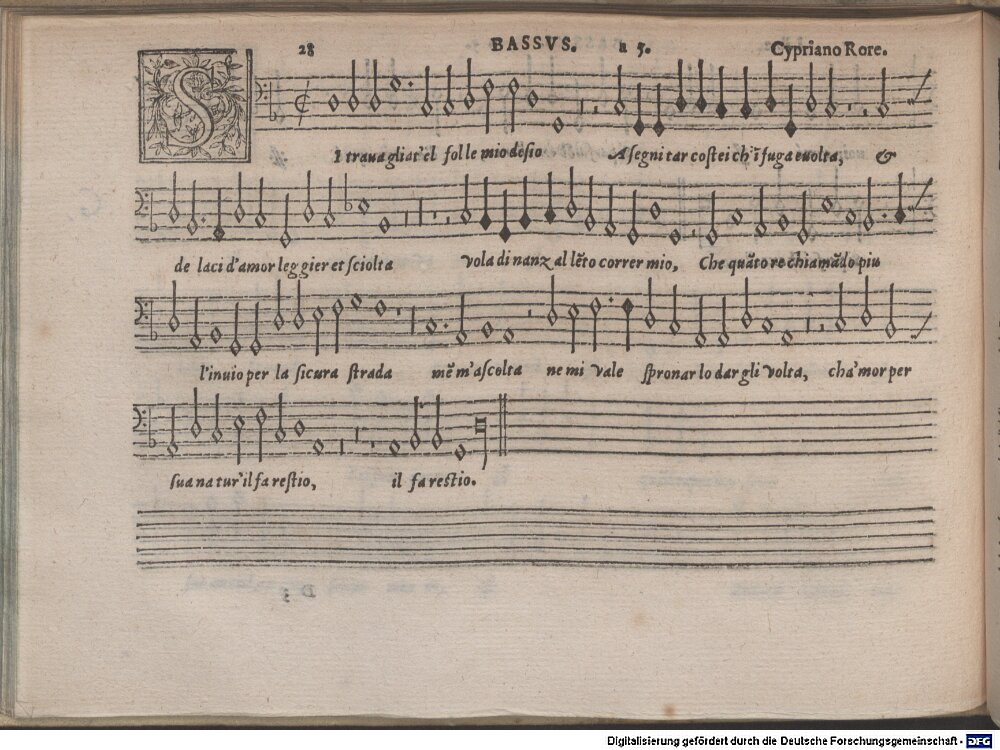 28 BASSVS. a 5. Cypriano Rore.
SI trauagliat'el folle mio desio A segnitar costei ch'ĩ fuga è uolta, &
de lacci d'amor leggier et sciolta vola dinanz al lẽto correr mio, Che quãto rechiamãdo piu
l'inuio per la sicura strada mẽ m'ascolta ne mi vale spronarlo dargli volta, ch'amor per
sua natur'il fa restio, il fa restio.
Digitalisierung gefördert durch die Deutsche Forschungsgemeinschaft - DFG